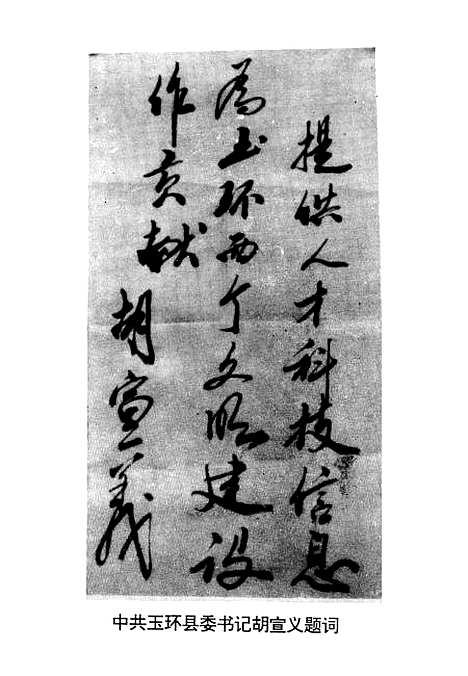 提供人才科技信息
为玉环两个文明建设
作贡献
胡宣義
中共玉环县委书记胡宣义题词